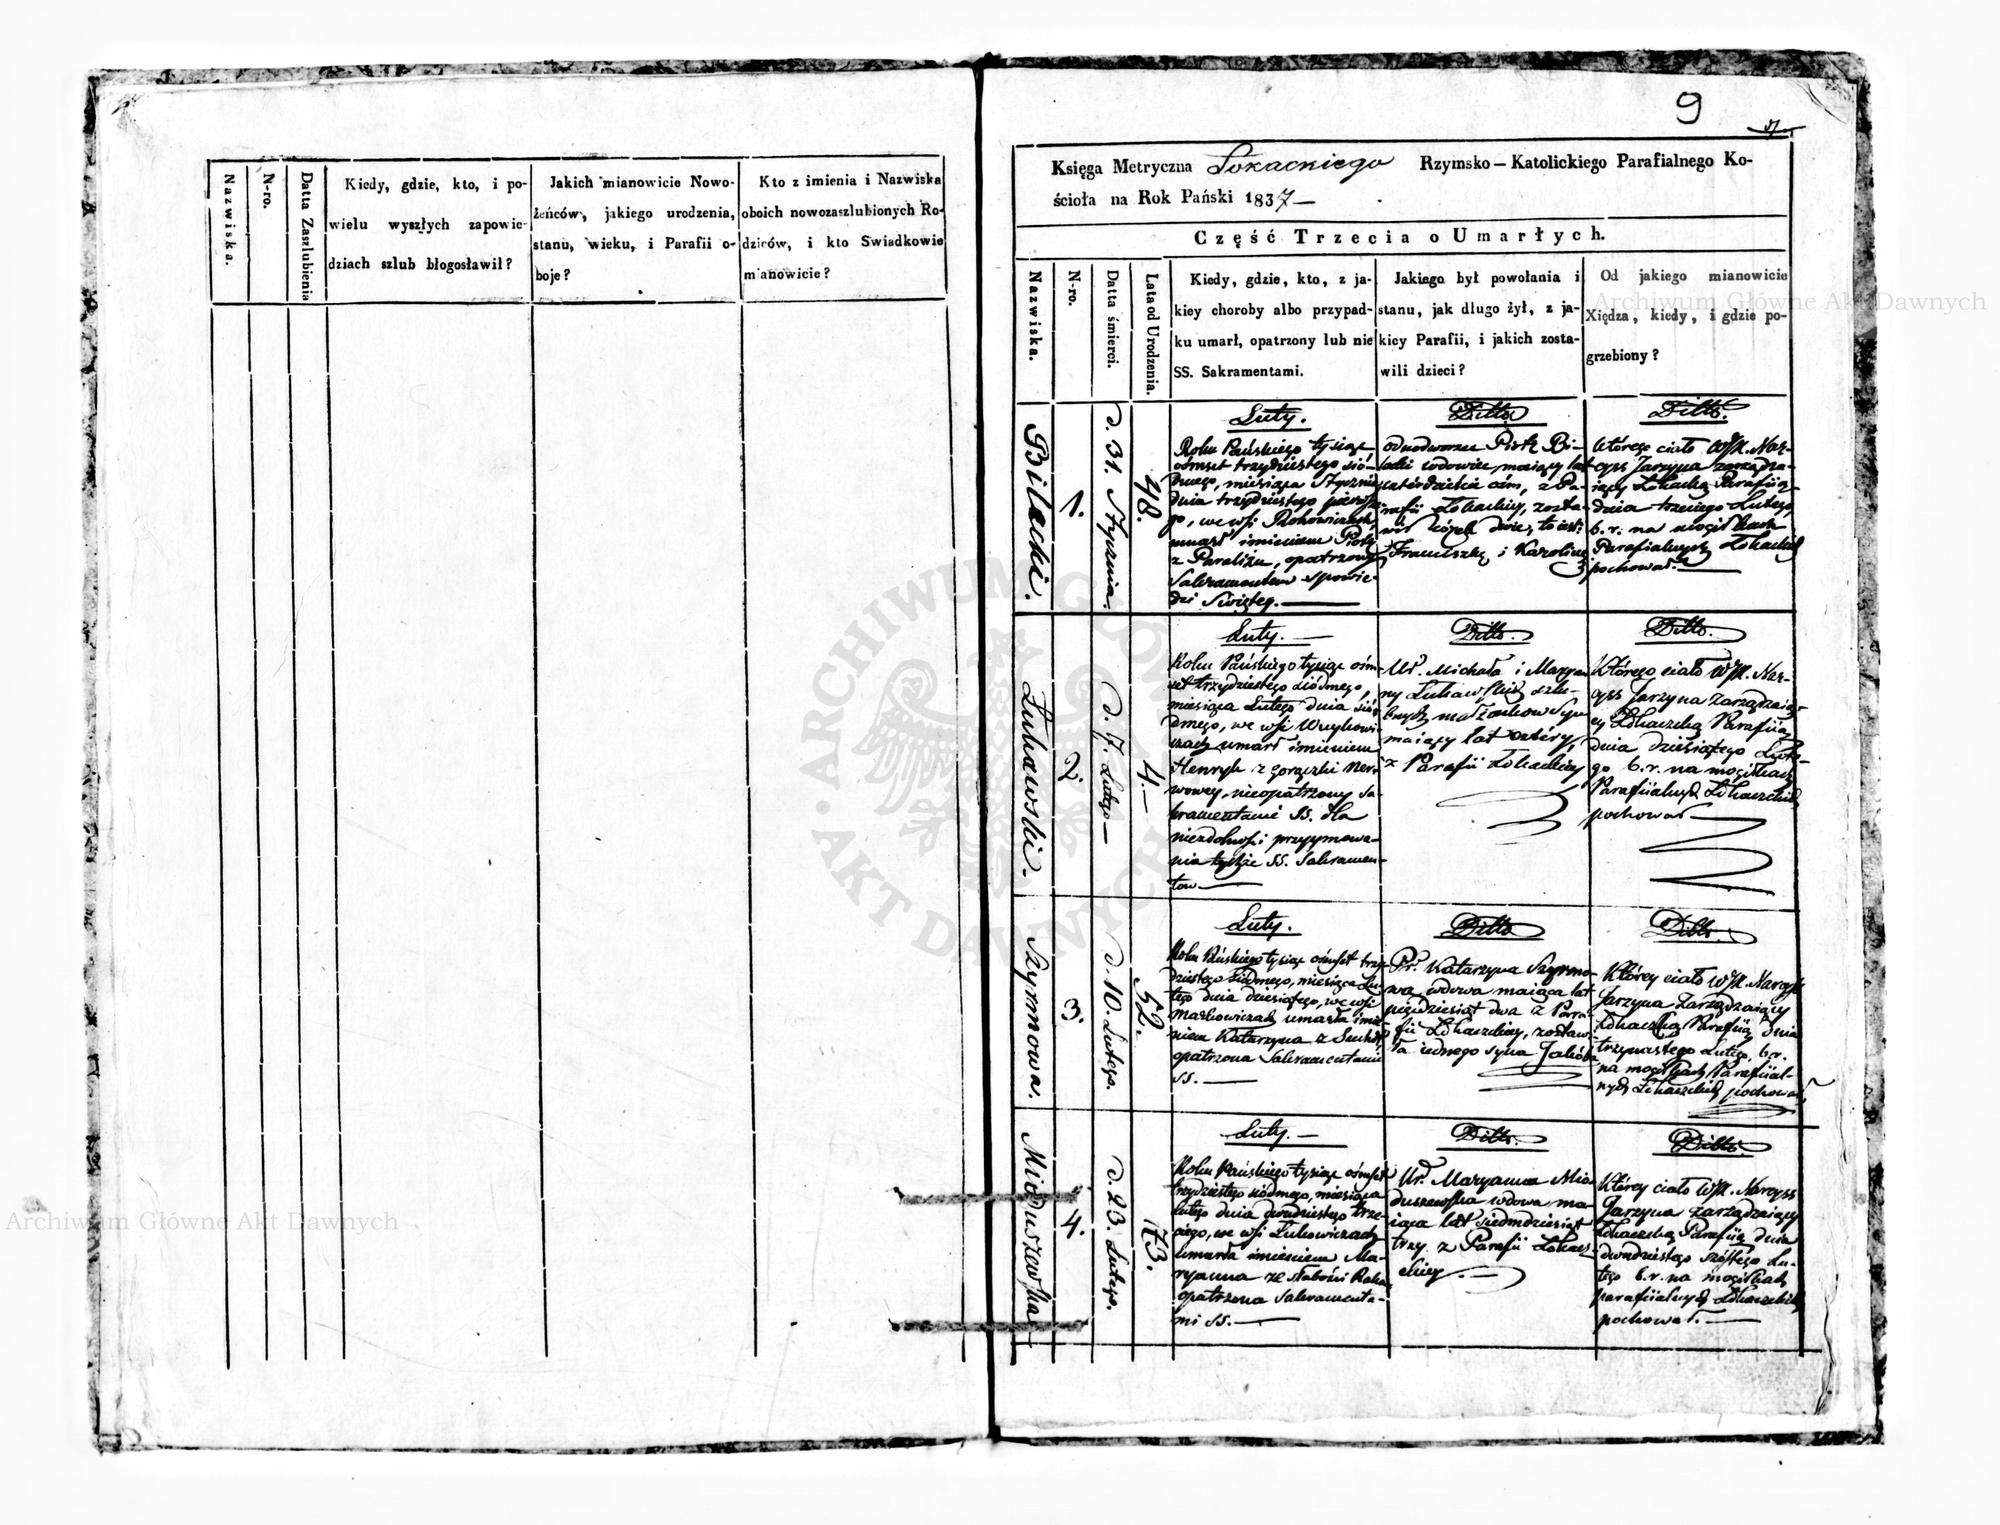 Nazwiska.
N-ro.
Datta Zaszlubienia
Kiedy, gdzie, kto, i po-
wielu wyszłych zapowie-
dziach szlub błogosławił?
Jakich mianowicie Nowo-
żeńców, jakiego urodzenia,
stanu, wieku, i Parafii o-
boje?
Kto z imienia i Nazwiska
oboich nowozaszlubionych Ro-
dziców, i kto Swiadkowie
mianowicie?
9
Księga Metryczna Łokackiego Rzymsko – Katolickiego Parafialnego Ko-
ścioła na Rok Pański 1837 —
Część Trzecia o Umarłych.
Nazwiska.
N-ro.
Datta śmierci.
Lata od Urodzenia.
Kiedy, gdzie, kto, z ja-
kiey choroby albo przypad-
ku umarł, opatrzony lub nie
SS. Sakramentami.
Jakiego był powołania i
stanu, jak długo żył, z ja-
kiey Parafii, i jakich zosta-
wili dzieci?
Od jakiego mianowicie
Xiędza, kiedy, i gdzie po-
grzebiony?
Bilecki.
1.
d. 31. Stycznia.
48.
Luty.
Roku Pańskiego tysiąc
ośmset trzydziestego siód-
mego, miesiąca Stycznia
dnia trzydziestego pierwsze-
go, we wsi
umarł imieniem Piotr
z Paraliżu, opatrzony
Sakramentem spowie-
dzi Swiętey. —
Ditto
odnodworzec Piotr Bi-
lecki wdowiec, maiący lat
czterdzieście ośm, z Pa-
rafii Łokackiey, zosta-
wił córek dwie, to iest:
Franciszkę i Karolinę
Ditto.
którego ciało WJX. Nar-
cyss Jarzyna zarządza-
iący Łokacką Parafiią
dnia trzeciego Lutego
b. r. na mogiłkach
Parafialnych Łokackich
pochował. —
Łukawski.
2.
d. 7. Lutego —
4. —
Luty. —
Roku Pańskiego tysiąc ośm-
set trzydziestego siódmego,
miesiąca Lutego dnia siód-
mego, we wsi
umarł imieniem
Henryk z gorączki ner-
wowey, nieopatrzony Sa-
kramentami SS. dla
niezdolności przyymowa-
nia tychże SS. Sakramen-
tow —
Ditto.
Ur. Michała i Maryan-
ny Łukawskich szlu-
bnych małżonkow Syn
maiący lat cztéry,
z Parafii Łokackiey
Ditto.
Którego ciało WJX. Nar-
cyss Jarzyna zarządzaią-
cy Łokaczką Parafiią
dnia dziesiątego Lute-
go b. r. na mogiłkach
Parafiialnych Łokaczkich
pochował —
Szyrmowa.
3.
d. 10. Lutego.
52.
Luty.
Roku Pańskiego tysiąc ośmset trzy-
dziestego siódmego, miesiąca Lu-
tego dnia dziesiątego, we wsi
Markowiczach umarła imie-
niem Katarzyna z Suchot,
opatrzona Sakramentami
SS. —
Ditto
Pr. Katarzyna Szyrmo-
wa wdowa maiąca lat
pięćdziesiąt dwa z Para-
fii Łokaczkiey, zostaw-
ła iednego syna Jakóba
Ditto.
Którey ciało WJX. Narcyss
Jarzyna Zarządzaiący
Łokaczką Parafiią dnia
trzynastego Lutego, b. r.
na mogiłkach Parafiial-
nych Łokaczkich pochował
Miduszewska
4.
d. 23. Lutego.
73.
Luty. —
Roku Pańskiego tysiąc ośmset
trzydziestego siódmego, miesiąca
Lutego dnia dwudziestego trze-
ciego, we wsi
umarła imieniem Ma-
ryanna ze słabości
opatrzona Sakramenta-
mi SS. —
Ditto.
Ur. Maryanna Mia-
duszewska wdowa ma-
iąca lat siedmdziesiąt
trzy. z Parafii Łokacz-
ckiey. —
Ditto
Którey ciało WJX. Narcyss
Jarzyna zarządzaiący
Łokaczką Parafiią dnia
dwudziestego szóstego Lu-
tego b. r. na mogiłkach
parafiialnych Łokaczkich
pochował. —
Archiwum Główne Akt Dawnych
Archiwum Główne Akt Dawnych
ARCHIWUM GŁÓWNE AKT DAWNYCH